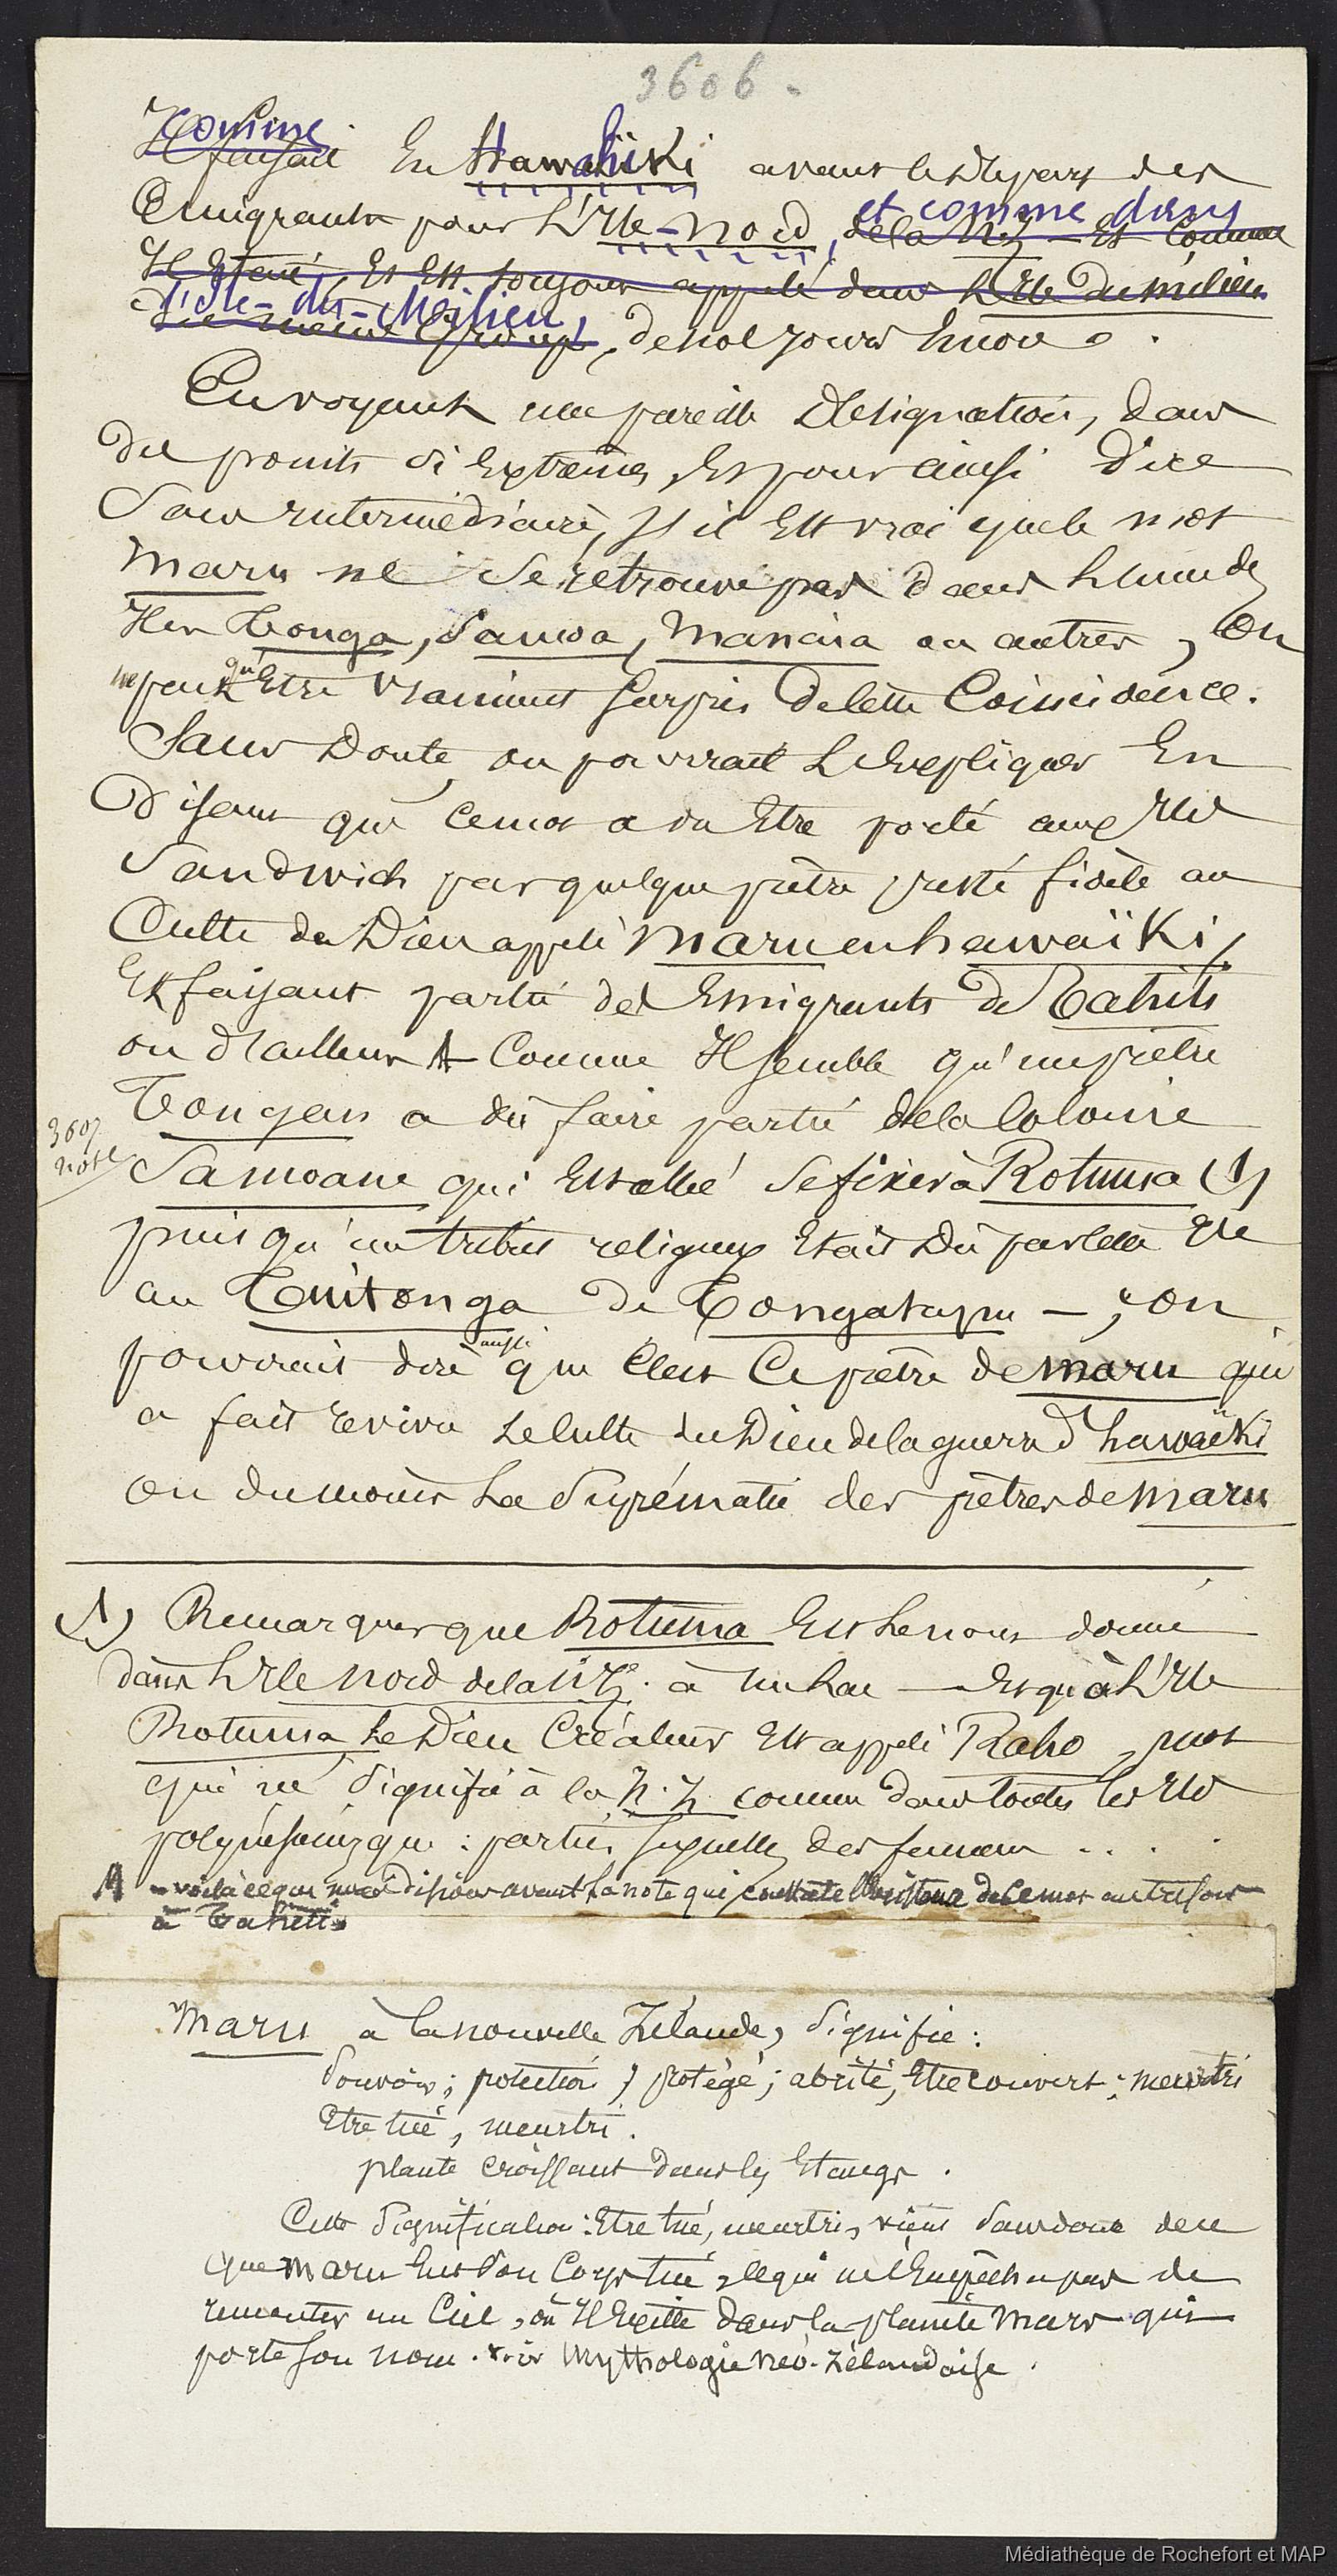 3606 -
comme
Il faisait En Hawahiki avant le départ des
Emigrants pour L'Ile-nord, et comme dans
de la N.Z - Et comme
Il Etait, Et Est toujours appelé dans L'Ile du milieu
l'île-du-Milieu,
du même Groupe, de nos jours Encore.
En voyant une pareille désignation, dans
des points si Extrêmes, Et pour ainsi dire
Sans intermédiaire, s'il Est vrai que le mot
maru ne se retrouve pas dans L'une des
Iles Tonga, Samoa, Manaia ou autres, On
ne peut qu'Etre vraiment surpris de cette Coincidence.
Sans Doute, on pourrait L'Expliquer En
Disant que ce mot a du Etre porté aux Iles
Sandwich par quelque prêtre resté fidèle au
Culte du Dieu appelé maru en hawaïki,
Et faisant partie des Emigrants de Tahiti
ou d'ailleurs A Comme Il semble qu'un prêtre
Tongan a dû faire partie de la Colonie
3607
note
Samoane qui Est allée se fixer à Rotuma (1)
puisqu'un tribut religieux Etait Dû par cette Ile
au Tuitonga de Tongatapu - ; on
pourrait dire aussi que C'est Ce prêtre de maru qui
a fait revivre Le Culte du Dieu de la guerre d'hawaïki
ou du moins La Suprématie des prêtres de maru
(1) Remarquer que Rotuma Est Le nom donné
dans L'Ile nord de la N.Z. à un Lac - Et qu'à L'Ile
Rotuma Le Dieu Créateur Est appelé Raho, mot
qui ne signifie à la N.Z comme dans toutes les Iles
polynésiennes que : parties sexuelles des femmes . . .
A - voilà ce que nous disions avant la note qui constate l'Existence de ce mot autrefois
à Tahiti.
Maru à la nouvelle Zélande, signifie :
Pouvoir ; protection ; protégé ; abrité, Etre couvert ; meurtri
Etre tué, meurtri.
plante croissant dans les Etangs.
Cette signification : Etre tué, meurtri, vient sans doute de ce
que maru Eut son Corps tué, ce qui ne l'Empêcha pas de
remonter au Ciel, où Il Existe dans la planète Mars qui
porte son nom. voir Mythologie néo-Zélandaise.
Médiathèque de Rochefort et MAP